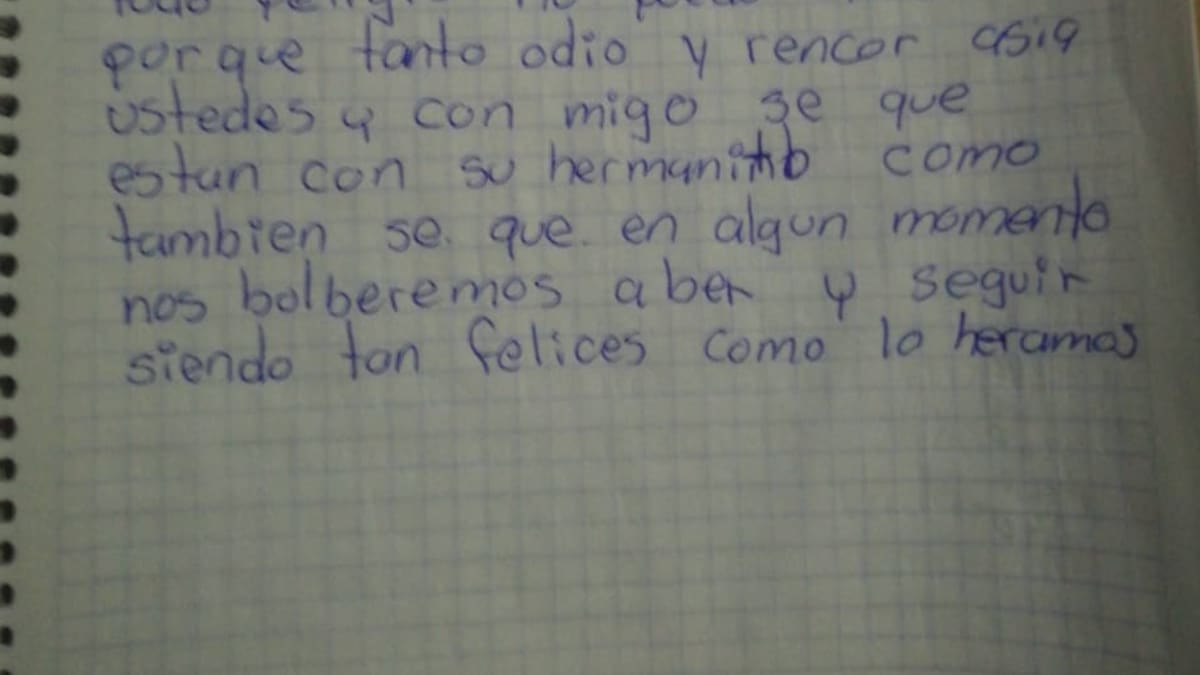 porque tanto odio y rencor asia
ustedes y con migo se que
estan con su hermanito como
tambien se. que. en algun momento
nos bolberemos a ber y seguir
siendo tan felices como lo heramos